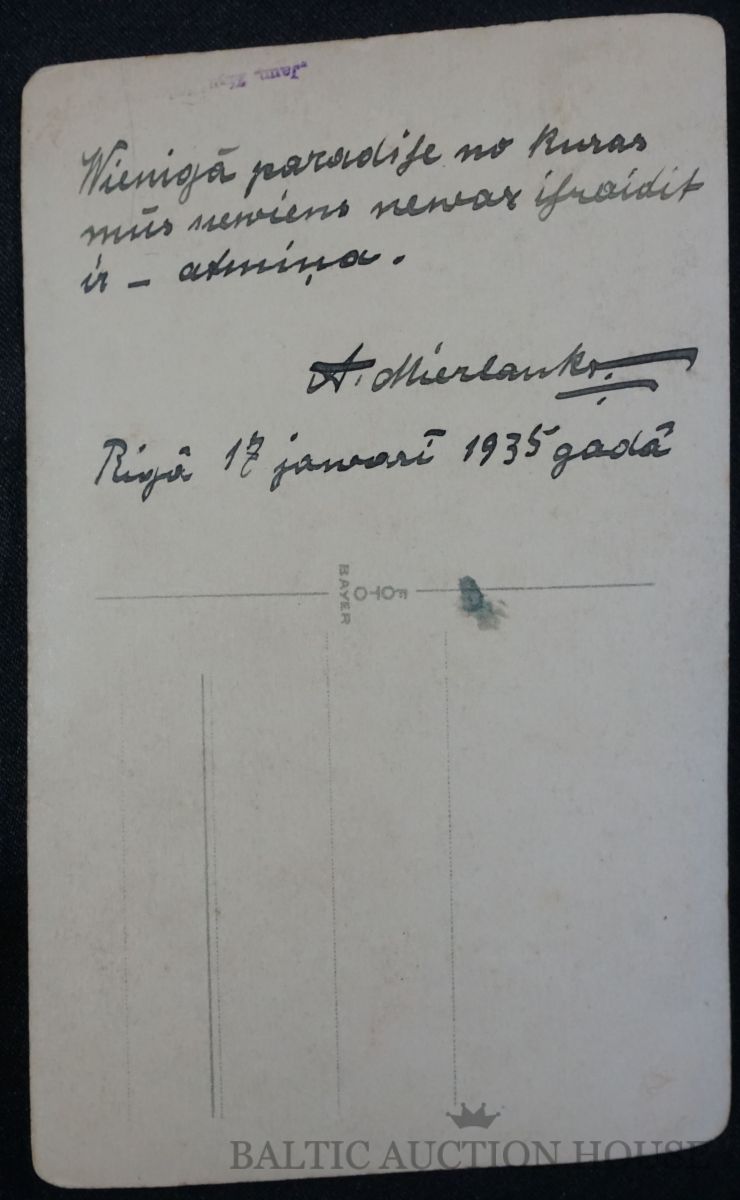 "Jaun.
Wienigā paradiſe no kuras
mūs neviens nevar iſraidit
ir – atmiņa.
A. Mierlauks.
Rigā 17 janvarī 1935 gadā
FOTO
BAYER
BALTIC AUCTION HOUSE